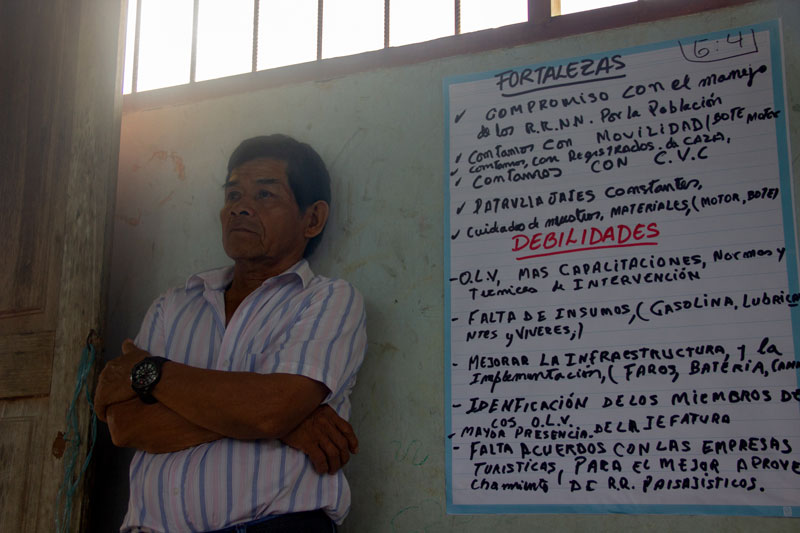 6:4
FORTALEZAS
✓ COMPROMISO CON el manejo
de los R.R.N.N. Por la Población
✓ Contamos CON MOVILIDAD/BOTE MOTOR
✓ contamos, con Registrados. de CAZA,
✓ Contamos CON C.V.C
✓ PATRULLAJES Constantes,
✓ Cuidados de nuestros, MATERIALES, (MOTOR, BOTE)
DEBILIDADES
- O.L.V, MAS CAPACITACIONES, Normas y
Tecnicas de INTERVENCIÓN
- FALTA DE INSUMOS, (GASOLINA, LUBRICA
NTES y VIVERES,)
- MEJORAR LA INFRAESTRUCTURA, y la
Implementación, (FAROS, BATERIA,
- IDENFICACIÓN DE LOS MIEMBROS DE
LOS O.L.V.
- MAYOR PRESENCIA. DE LA JEFATURA
- FALTA ACUERDOS CON LAS EMPRESAS
TURISTICAS, PARA EL MEJOR APROVE
chamiento DE RR. PAISAJÍSTICOS.